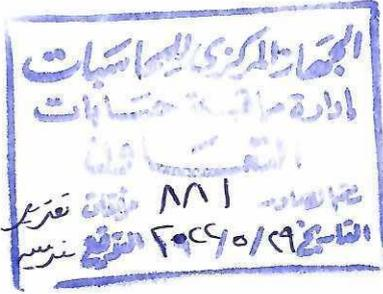 الجهاز المركزى للمحاسبات
إدارة مراقبة حسابات
٨٨١ مرفقات تقرير
التاريخ ٢٠٢٢/٥/٢٩ التوقيع